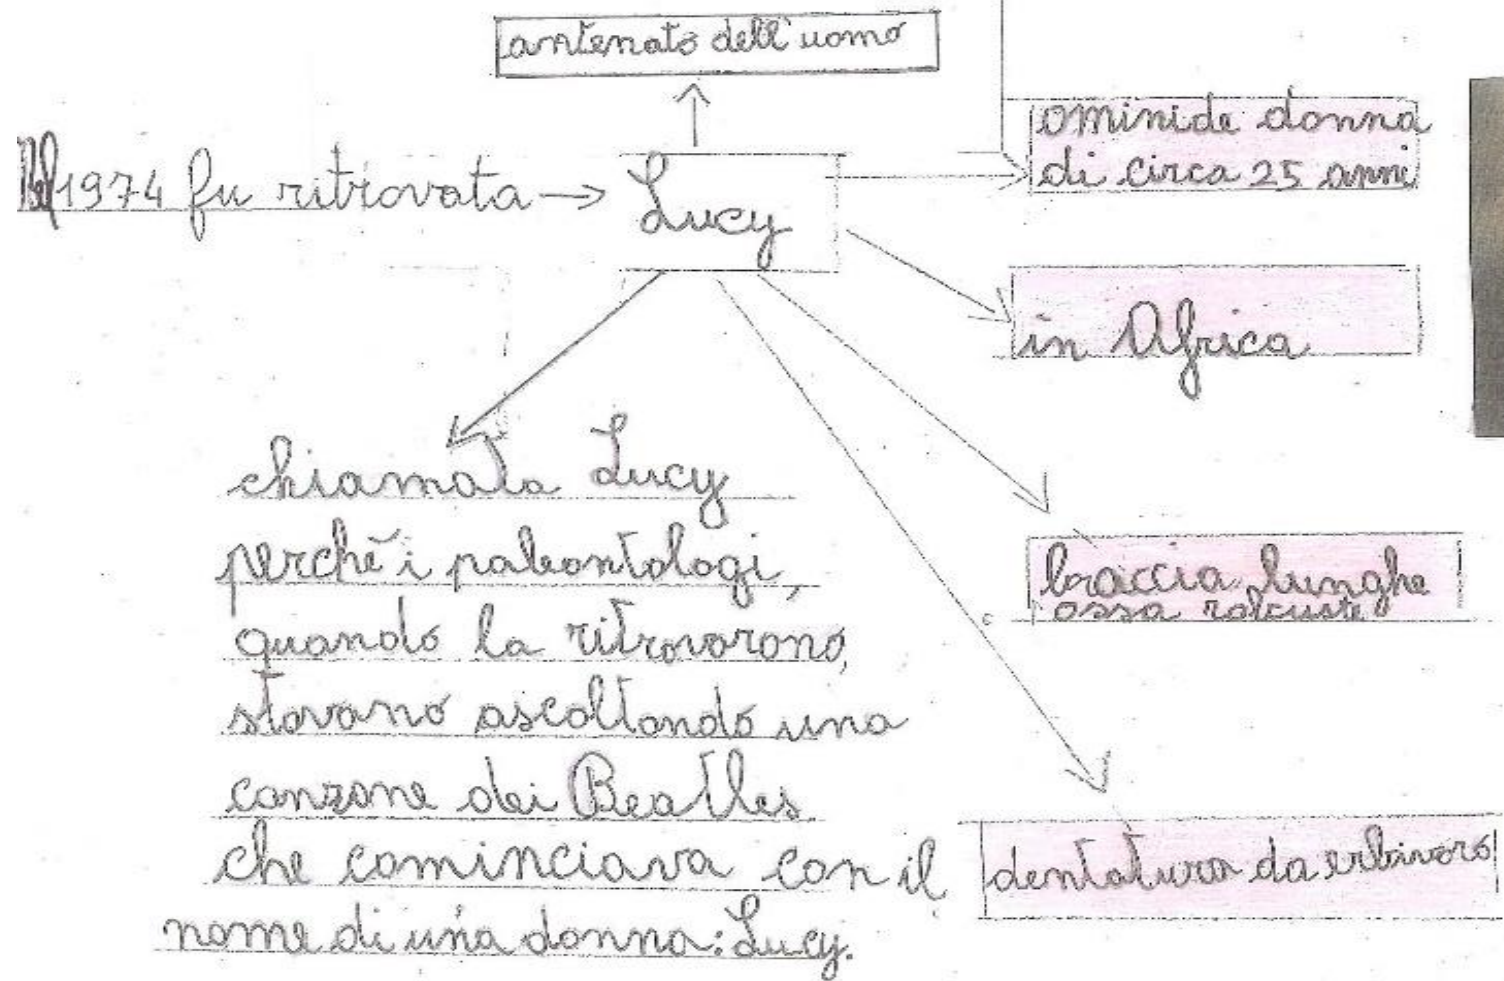 antenato dell'uomo
Nel 1974 fu ritrovata → Lucy
ominide donna
di circa 25 anni
in Africa
braccia lunghe
ossa robuste
dentatura da erbivoro
chiamata Lucy
perchè i paleontologi,
quando la ritrovarono,
stavano ascoltando una
canzone dei Beatles
che cominciava con il
nome di una donna: Lucy.